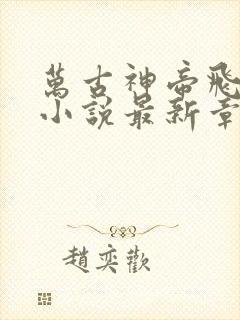 萬古神帝飛
小說最新章
趙奕歡